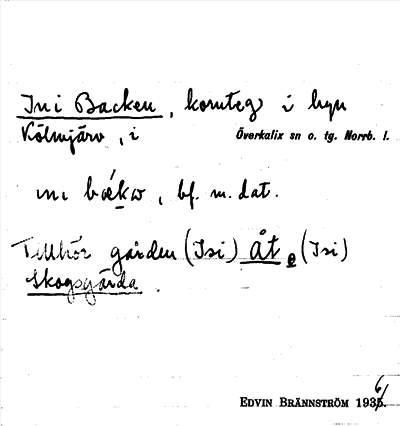 Ini Backen, kornteg i byn
Kölmjärv, i Överkalix sn o. tg. Norrb. l.
ini bækw, bf. m. dat.
Tillhör gården (Isi) åt e (Isi)
Skogsgärda.
EDVIN BRÄNNSTRÖM 1936.